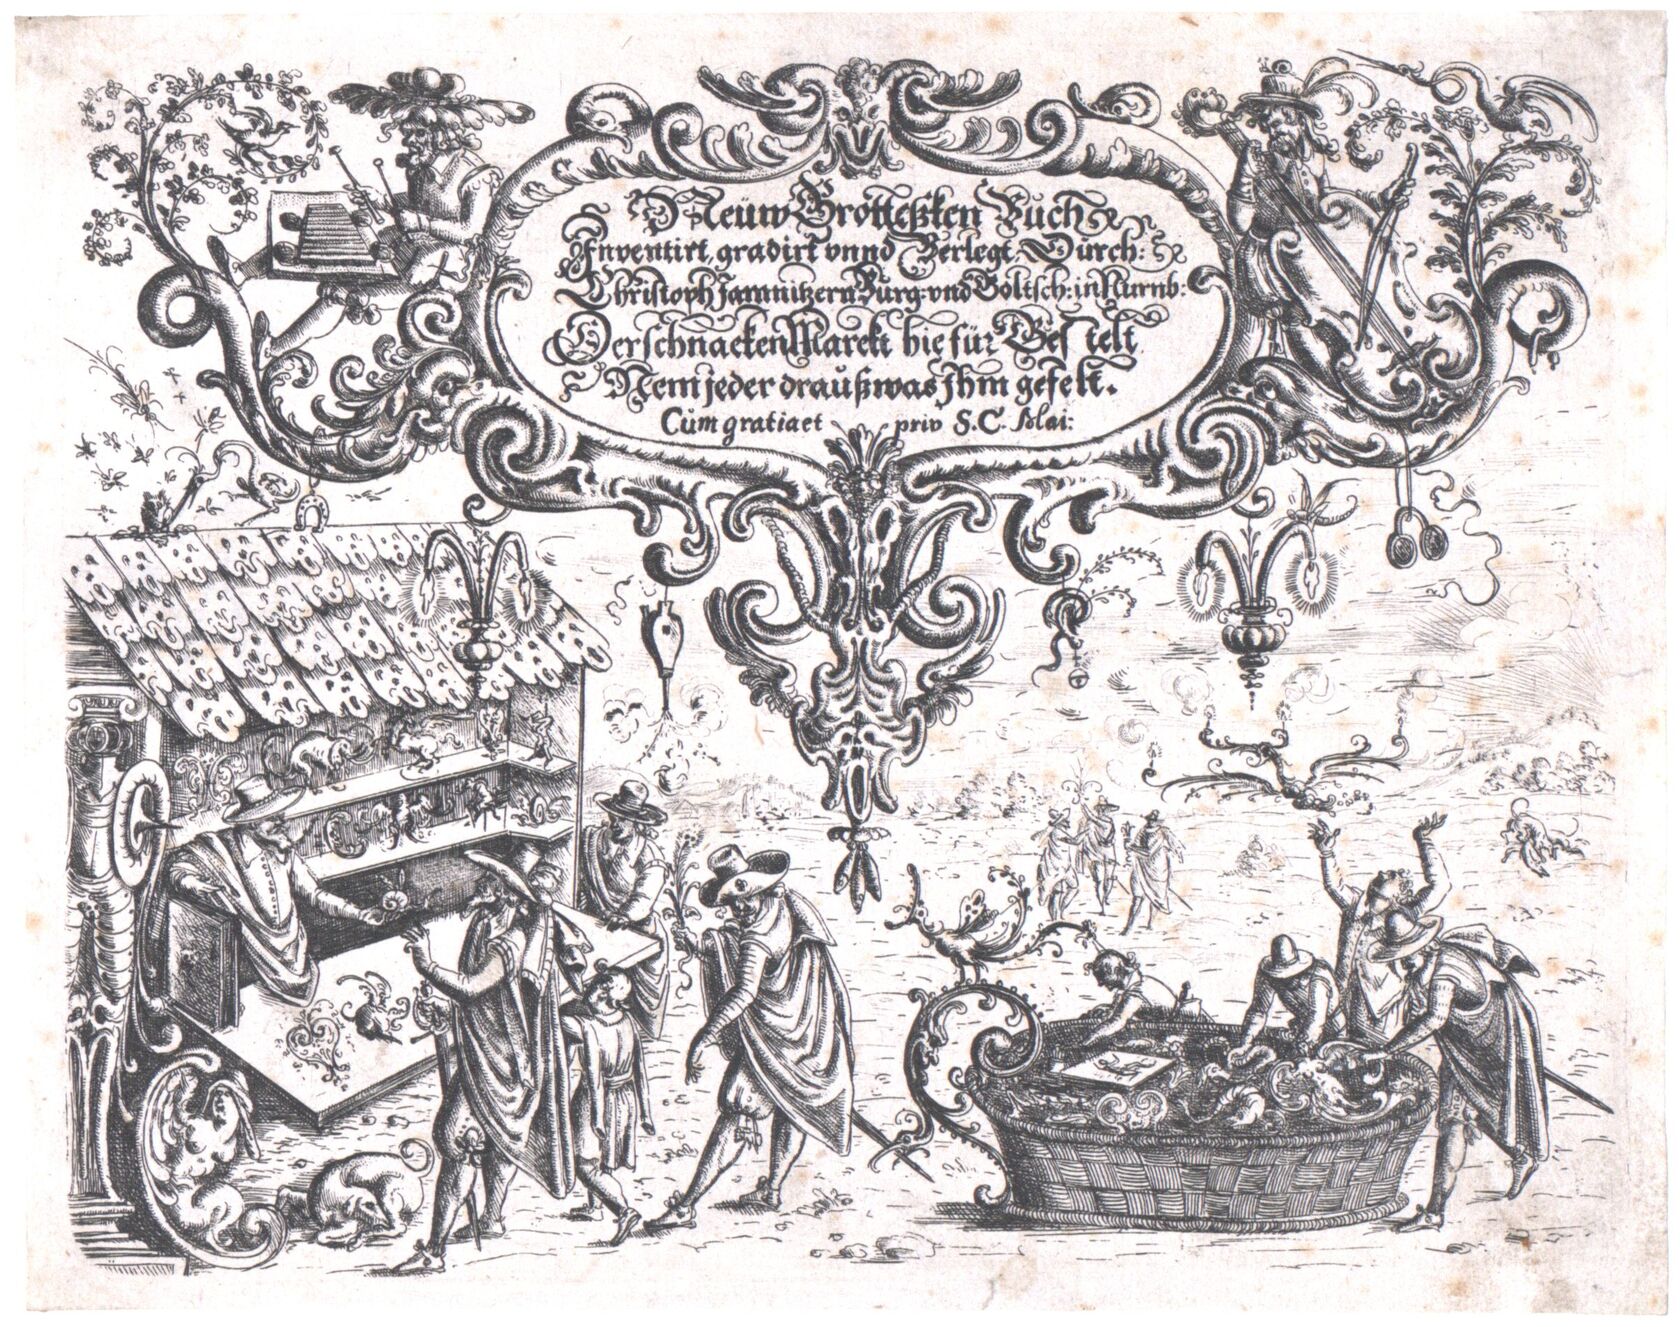 Neüw Grotteßken Buch
Inventirt, gradirt vnnd Verlegt, Durch:
Christoph Jamnitzern Burg: vnd Goltsch: in Nurnb:
Der schnacken Marckt hie für Gestelt
Nem jeder draußwas Ihm gefelt.
Cum gratia et priv S. C. Mai: